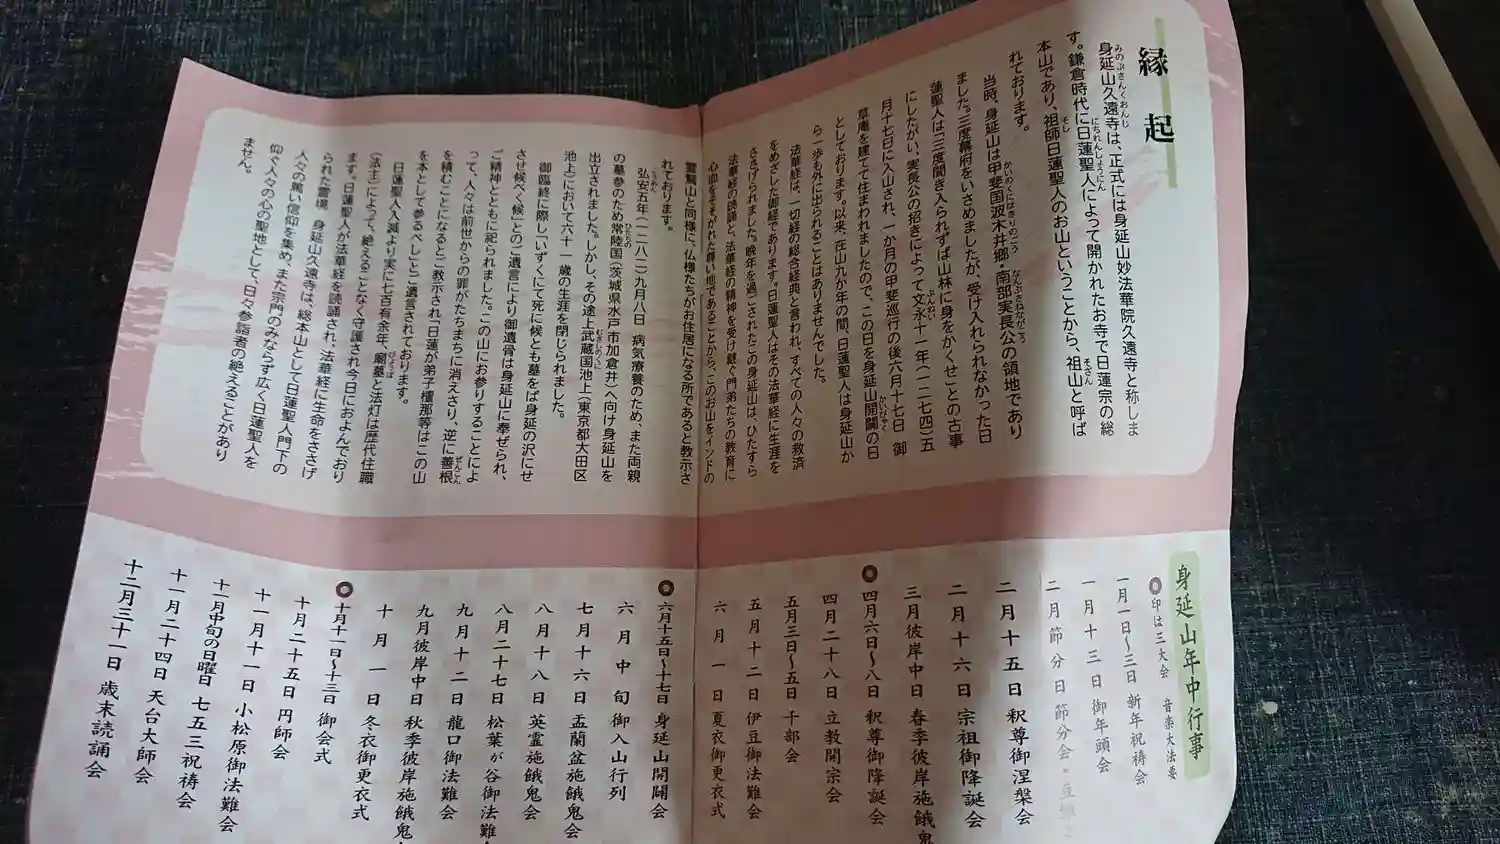 縁起
身延山久遠寺は、正式には身延山妙法華院久遠寺と称しま
す。鎌倉時代に日蓮聖人によって開かれたお寺で日蓮宗の総
本山であり、祖師日蓮聖人のお山ということから、祖山と呼ば
れております。
当時、身延山は甲斐国波木井郷・南部実長公の領地であり
ました。三度幕府をいさめましたが、受け入れられなかった日
蓮聖人は「三度聞き入られずば山林に身をかくせ」との古事
にしたがい、実長公の招きによって文永十一年（一二七四）五
月十七日に入山され、一か月の甲斐巡行の後六月十七日 御
草庵を建てて住まわれましたので、この日を身延山開闢の日
としております。以来、在山九か年の間、日蓮聖人は身延山か
ら一歩も外に出られることはありませんでした。
法華経は、一切経の総合経典と言われ、すべての人々の救済
をめざした御経であります。日蓮聖人はその法華経に生涯を
ささげられました。晩年を過ごされたこの身延山は、ひたすら
法華経の読誦と、法華経の精神を受け継ぐ門弟たちの教育に
心血をそそがれた尊い地であることから、このお山をインドの
霊鷲山と同様に、「仏様たちがお住居になる所であると教示さ
れております。
弘安五年（一二八二）九月八日 病気療養のため、また両親
の墓参のため常陸国（茨城県水戸市加倉井）へ向け身延山を
出立されました。しかし、その途上武蔵国池上（東京都大田区
池上）において六十一歳の生涯を閉じられました。
御臨終に際し「いずくにて死に候とも墓をば身延の沢にせ
させ候べく候」とのご遺言により御遺骨は身延山に奉ぜられ、
ご精神とともに祀られました。この山にお参りすることによ
って、人々は前世からの罪がたちまちに消えさり、逆に善根
を積むことになるとご教示され「日蓮が弟子檀那等はこの山
を本として参るべし」とご遺言されております。
日蓮聖人入滅より実に七百有余年、廟墓と法灯は歴代住職
（法主）によって、絶えることなく守護され今日におよんでおり
ます。日蓮聖人が法華経を読誦され、法華経に生命をささげ
られた霊境 身延山久遠寺は、総本山として日蓮聖人門下の
人々の篤い信仰を集め、また宗門のみならず広く日蓮聖人を
仰ぐ人々の心の聖地として、日々参詣者の絶えることがあり
ません。
身延山年中行事
◎印は三大会 音楽大法要
一月一日〜三日 新年祝祷会
一月十三日 御年頭会
二月節分日 節分会・
二月十五日 釈尊御涅槃会
二月十六日 宗祖御降誕会
三月彼岸中日 春季彼岸施餓鬼
◎四月六日〜八日 釈尊御降誕会
四月二十八日 立教開宗会
五月三日〜五日 千部会
五月十二日 伊豆御法難会
六月一日 夏衣御更衣式
◎六月十五日〜十七日 身延山開闢会
六月中旬 御入山行列
七月十六日 盂蘭盆施餓鬼会
八月十八日 英霊施餓鬼会
八月二十七日 松葉が谷御法難会
九月十二日 龍口御法難会
九月彼岸中日 秋季彼岸施餓鬼
十月一日 冬衣御更衣式
◎十月十一日〜十三日 御会式
十月二十五日 円師会
十一月十一日 小松原御法難会
十一月中旬の日曜日 七五三祝祷会
十一月二十四日 天台大師会
十二月三十一日 歳末読誦会